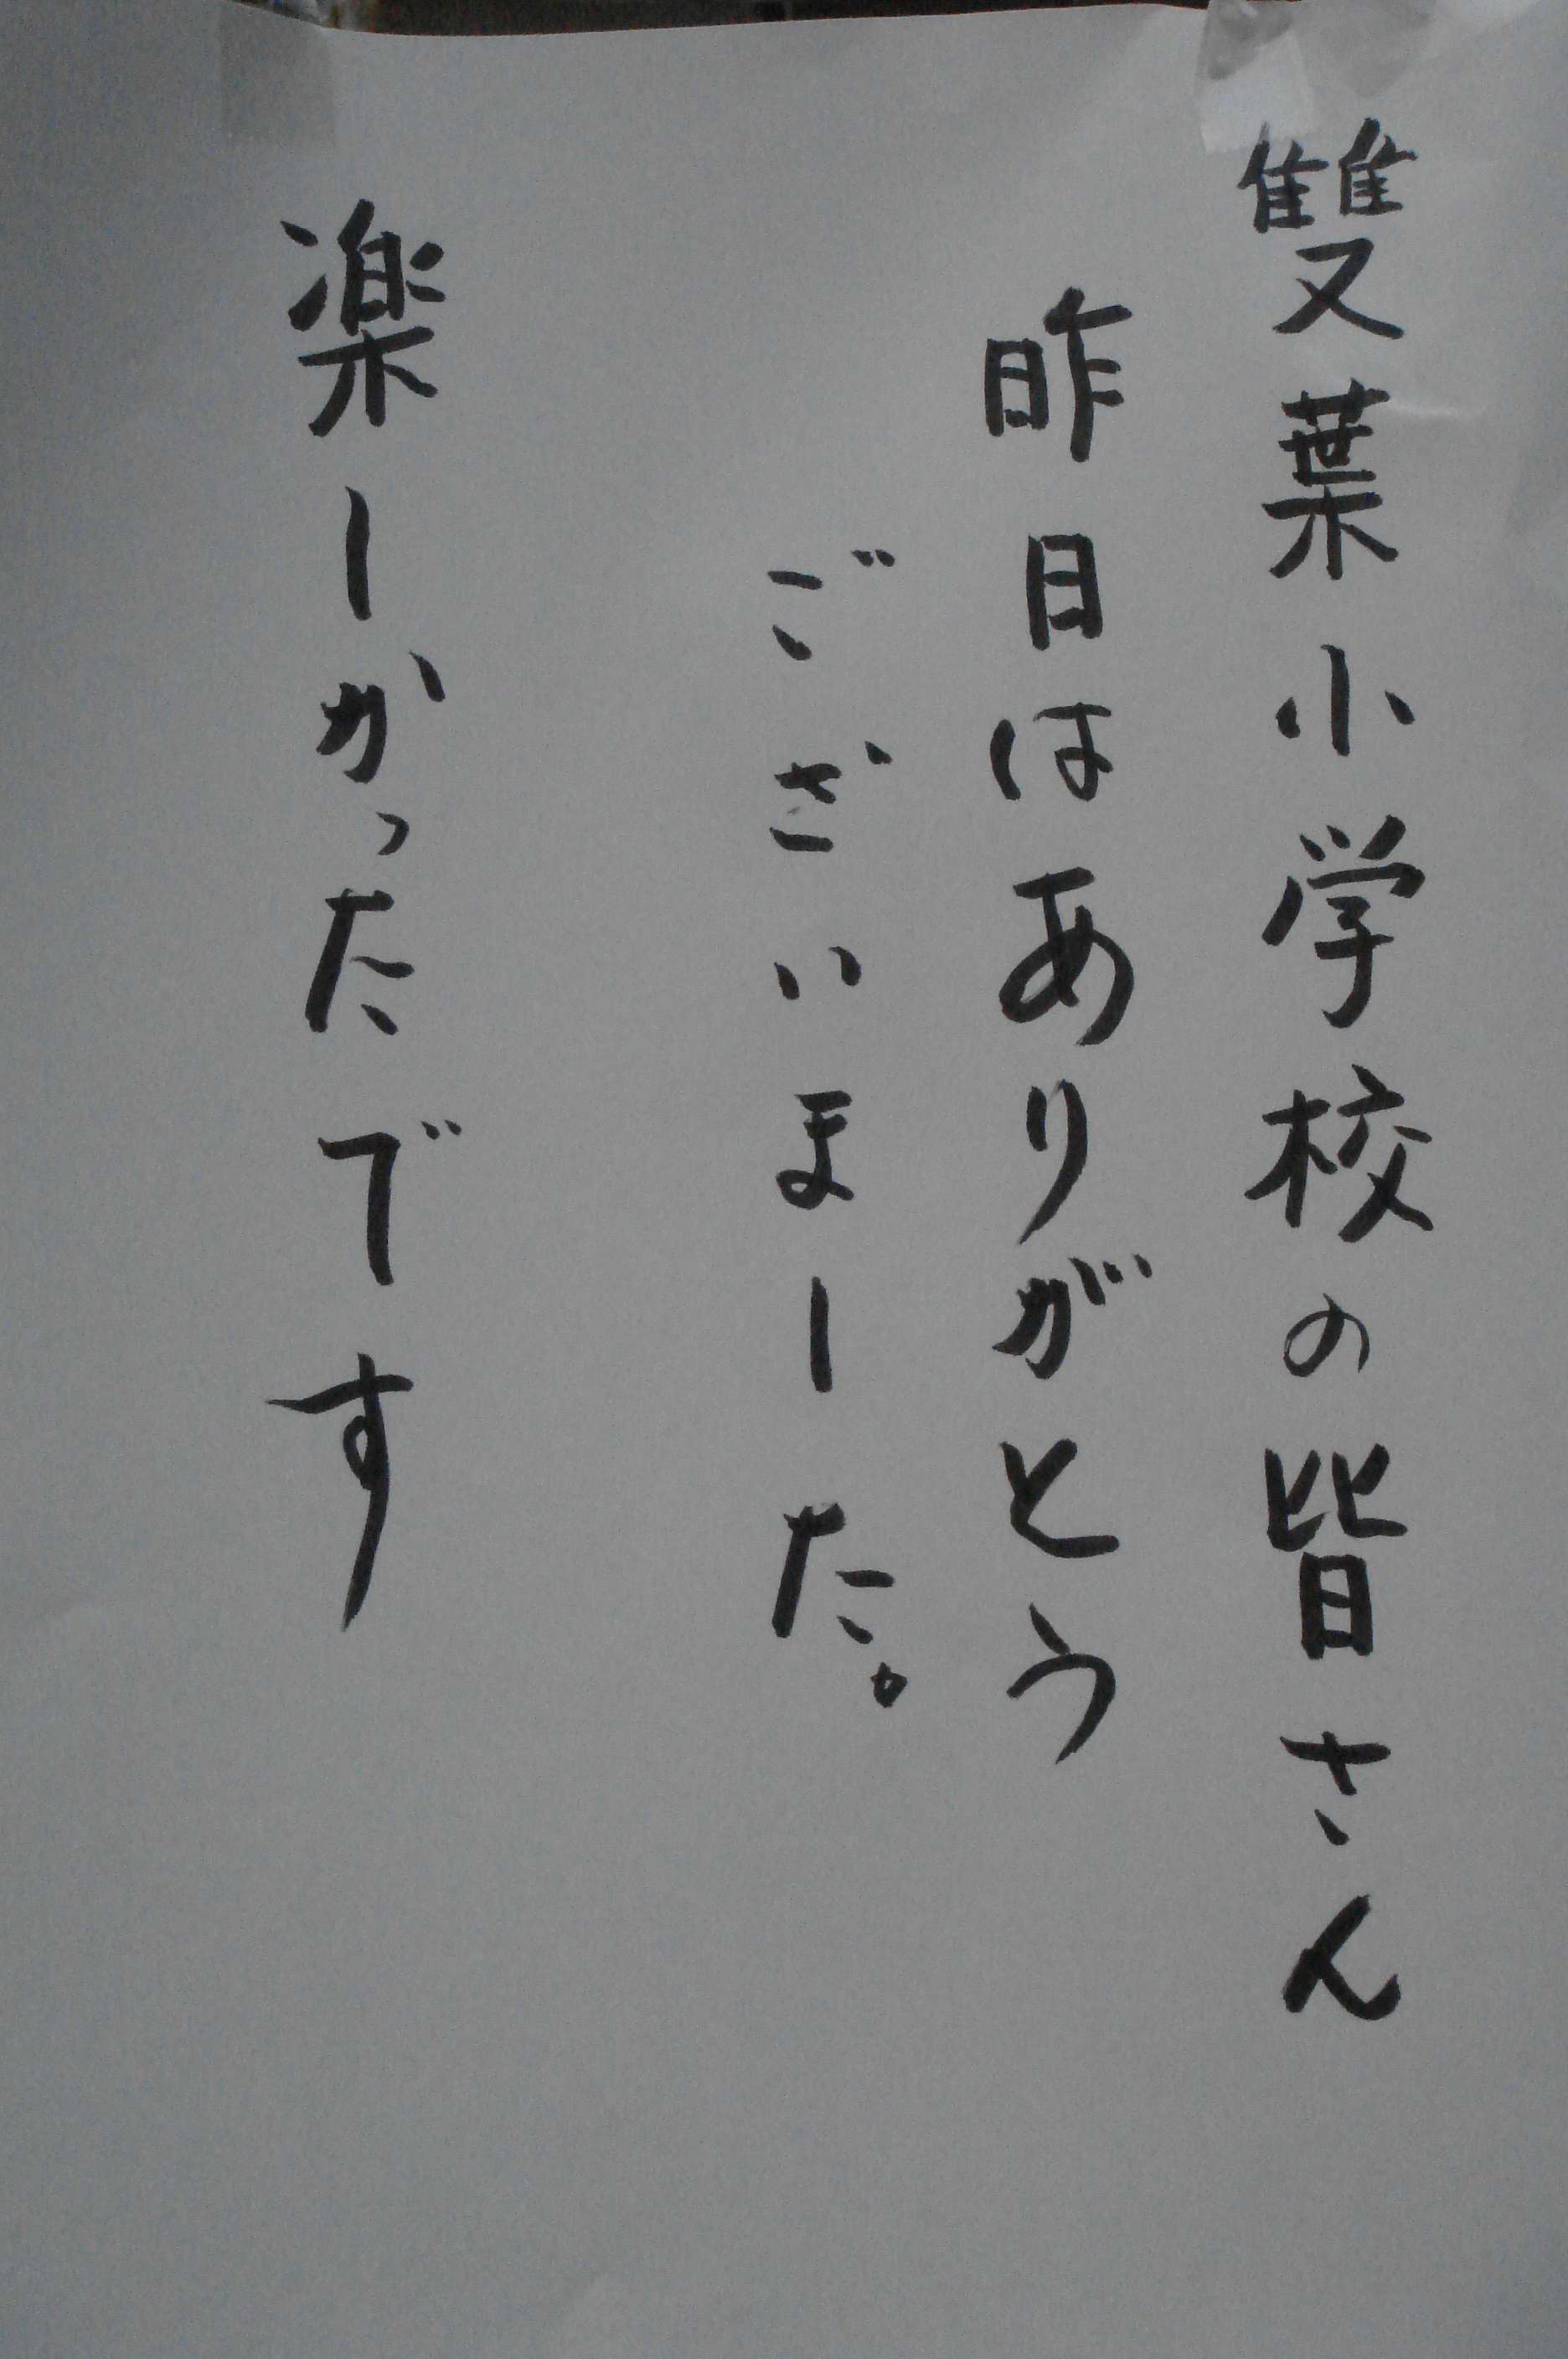 雙葉小学校の皆さん
昨日はありがとう
ございました。
楽しかったです